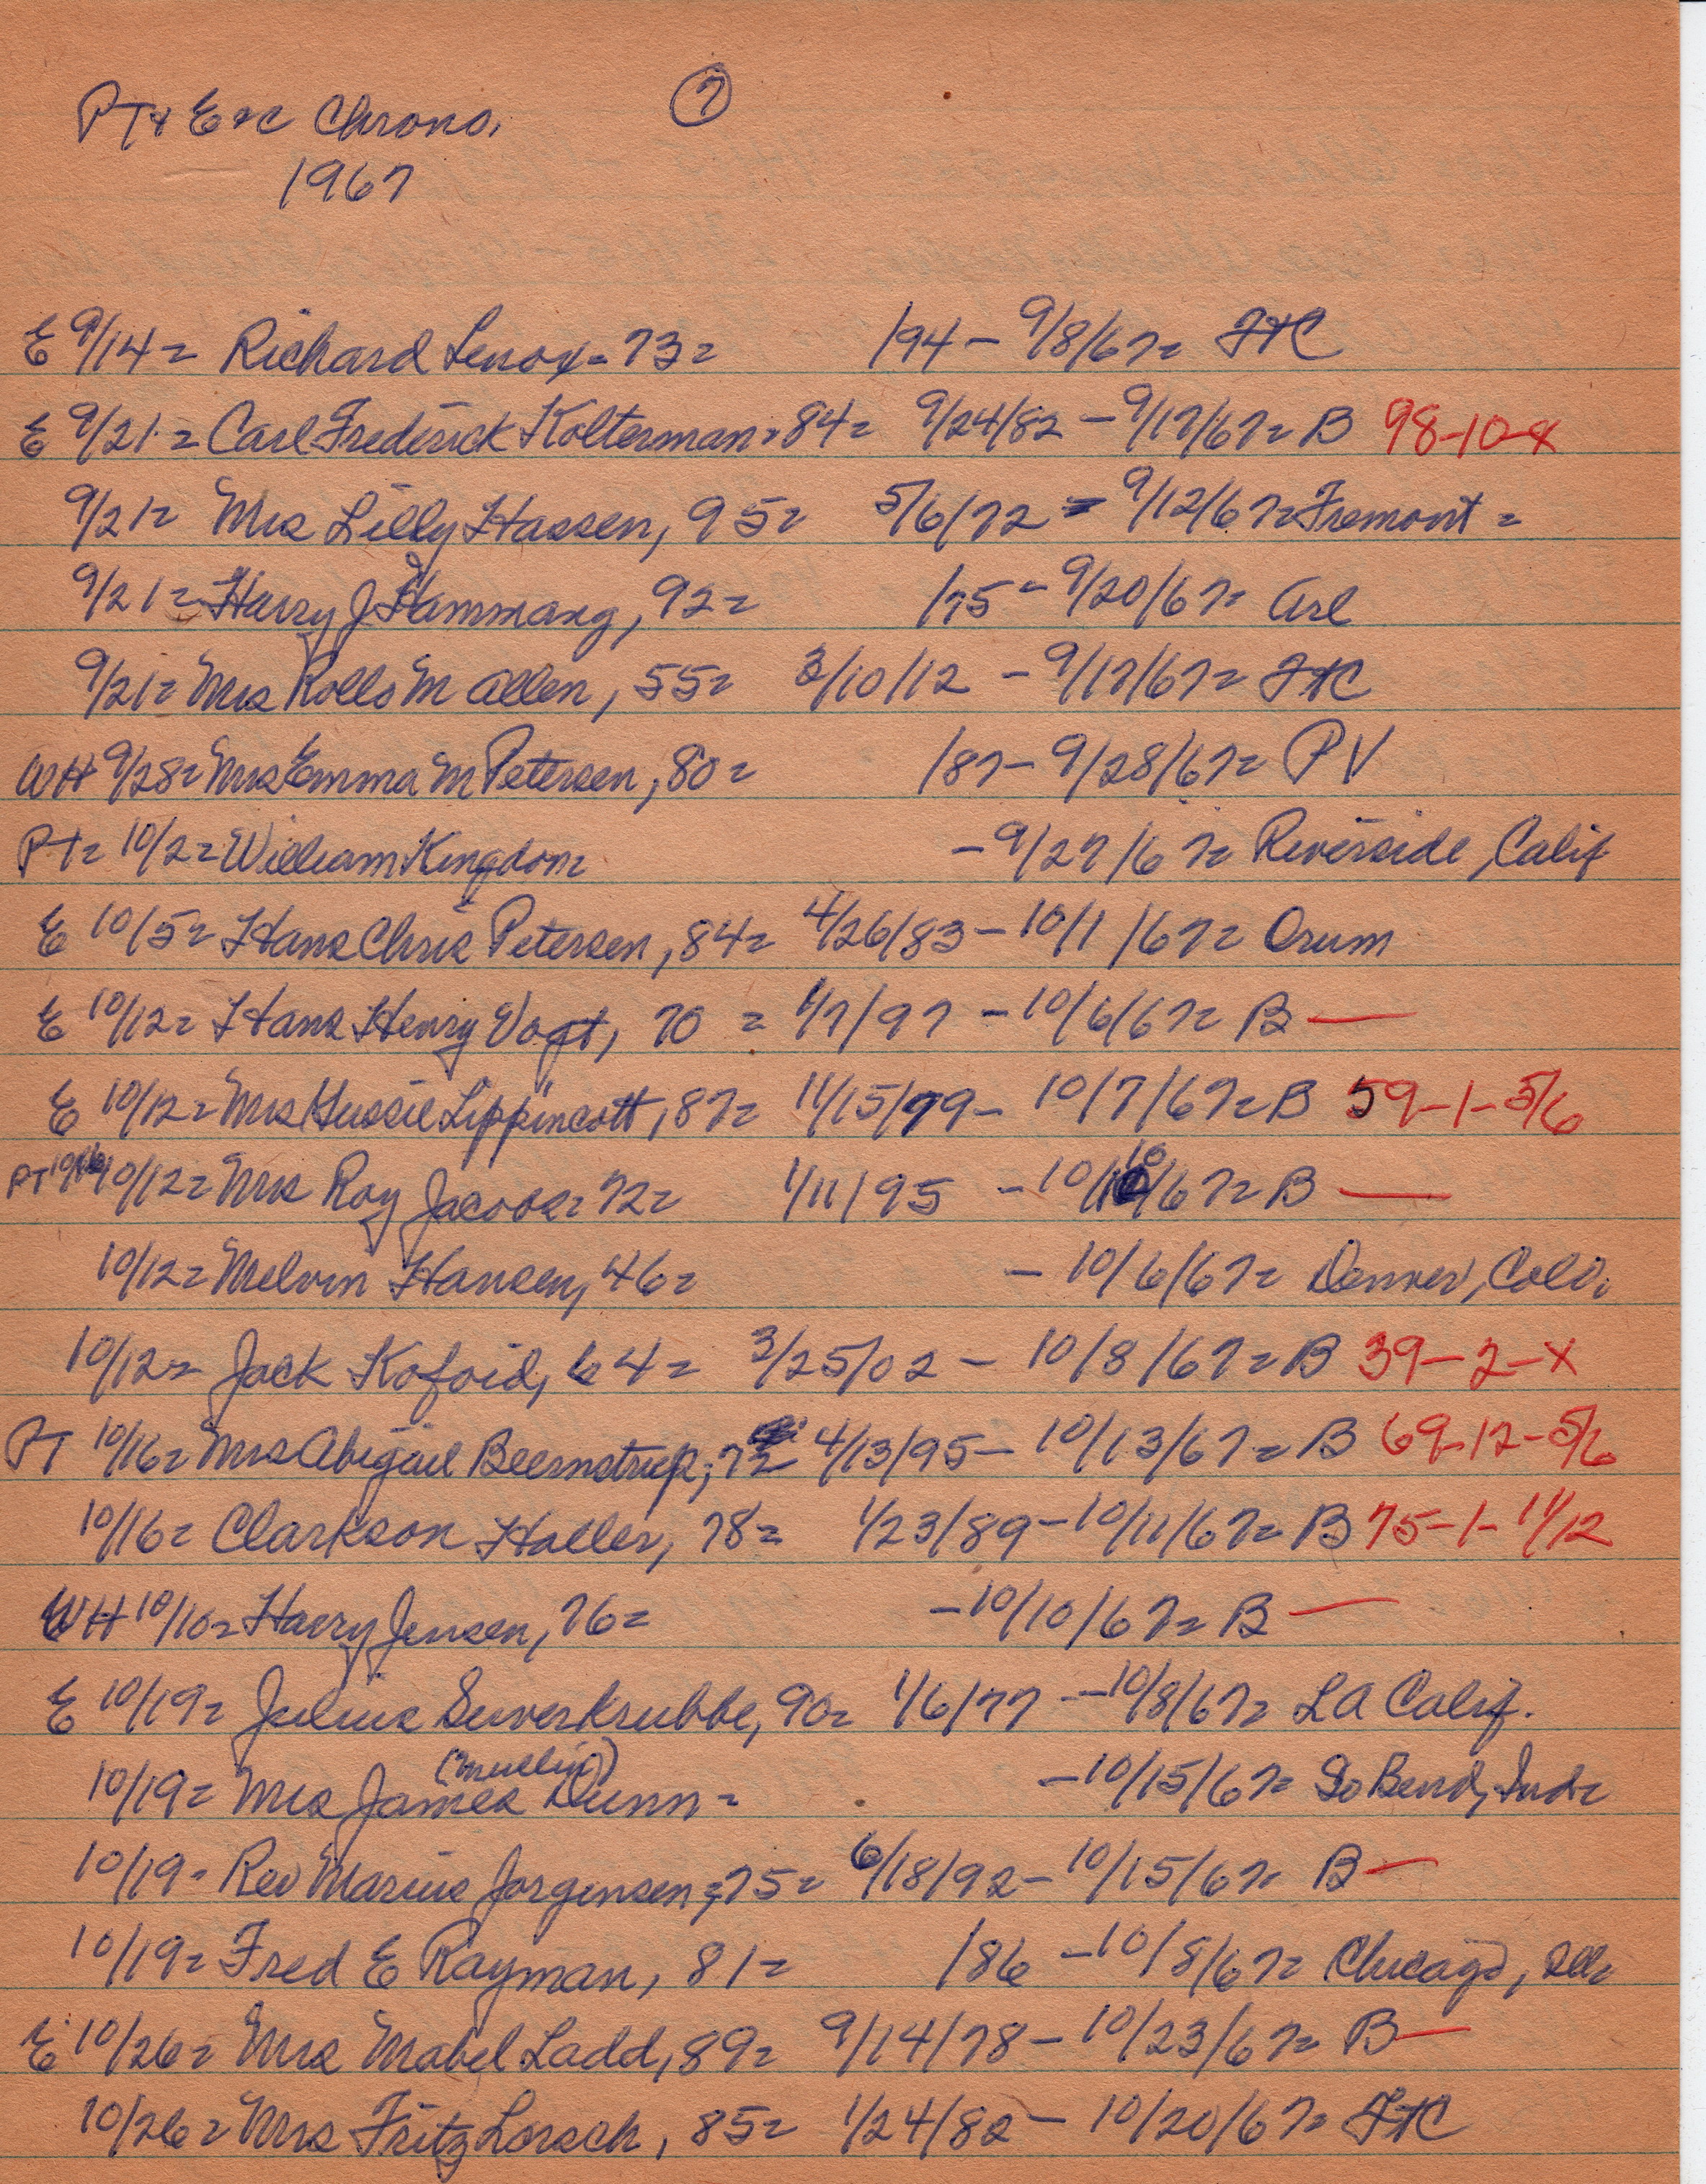 PT & E et C Chrono. 7
1967
E 9/14 = Richard Lenox = 73 = /94 - 9/8/67 = FtC
E 9/21 = Carl Frederick Kolterman = 84 = 9/24/82 - 9/17/67 = B 98-10-x
9/21 = Mrs Lilly Hassen, 95 = 5/6/72 = 9/12/67 = Fremont =
9/21 = Harry J Hammang, 92 = /75 - 9/20/67 = Arl
9/21 = Mrs Rollo M Allen, 55 = 3/10/12 - 9/17/67 = FtC
WH 9/28 = Mrs Emma M Petersen, 80 = /87 - 9/28/67 = PV
PT = 10/2 = William Kingdom = - 9/27/67 = Riverside, Calif
E 10/5 = Hans Chris Petersen, 84 = 4/26/83 - 10/1/67 = Orum
E 10/12 = Hans Henry Vogt, 70 = 1/7/97 - 10/6/67 = B —
E 10/12 = Mrs Gussie Lippincott, 87 = 11/15/79 - 10/7/67 = B 59-1-5/6
PT 10/16 10/12 = Mrs Roy Jacobs = 72 = 1/11/95 - 10/10/67 = B —
10/12 = Melvin Hansen, 46 = - 10/6/67 = Denver, Colo.
10/12 = Jack Kofoid, 64 = 3/25/02 - 10/8/67 = B 39-2-x
PT 10/16 = Mrs Abigail Beernstrup, 72 = 4/13/95 - 10/13/67 = B 69-12-5/6
10/16 = Clarkson Haller, 78 = 1/23/89 - 10/11/67 = B 75-1-11/12
WH 10/10 = Harry Jensen, 76 = - 10/10/67 = B —
E 10/19 = Julius Suverkrubbe, 90 = 1/6/77 - 10/8/67 = LA Calif.
(Mullin)
10/19 = Mrs James Dunn = - 10/15/67 = So Bend, Ind =
10/19 = Rev Marius Jorgensen, 75 = 6/18/92 - 10/15/67 = B —
10/19 = Fred E Rayman, 81 = /86 - 10/8/67 = Chicago, Ill =
E 10/26 = Mrs Mabel Ladd, 89 = 9/14/78 - 10/23/67 = B —
10/26 = Mrs Fritz Lorsch, 85 = 1/24/82 - 10/20/67 = FtC